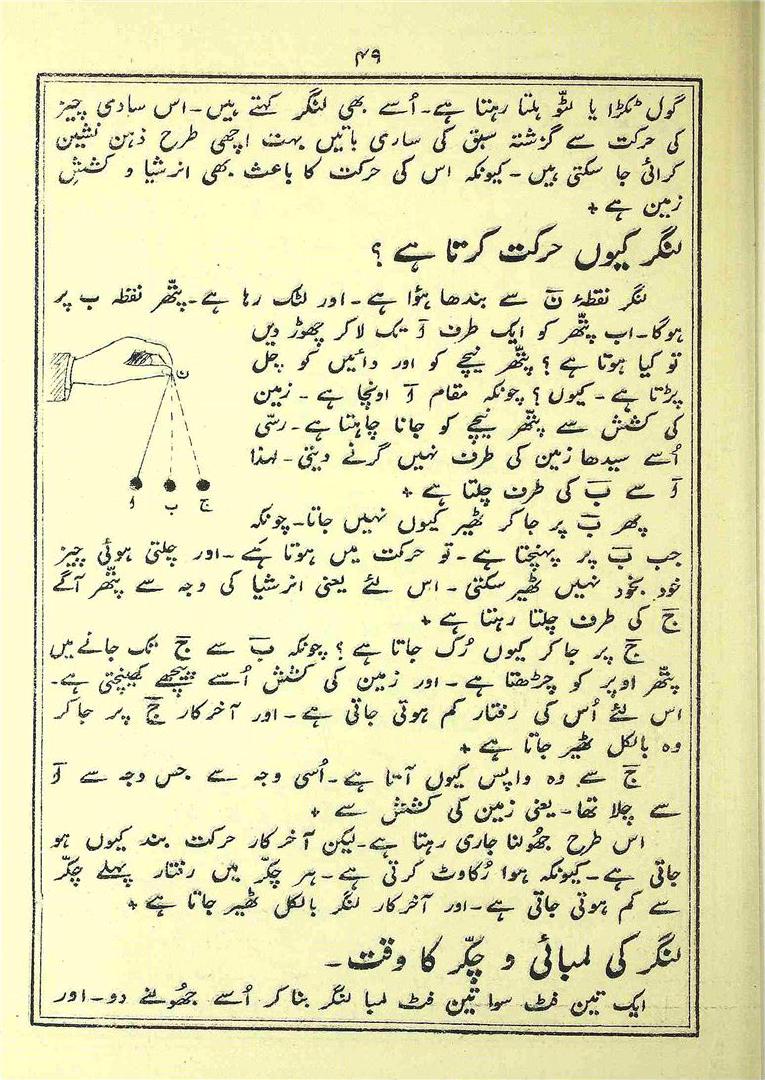 ۴۹
گول ٹکڑا یا لٹّو ہلتا رہتا ہے۔ اُسے بھی لنگر کہتے ہیں۔ اس سادی چیز
کی حرکت سے گزشتہ سبق کی ساری باتیں بہت اچھی طرح ذہن نشین
کرائی جا سکتی ہیں۔ کیونکہ اس کی حرکت کا باعث بھی انرشیا و کششِ
زمین ہے +
لنگر کیوں حرکت کرتا ہے ؟
لنگر نقطۂ نَ سے بندھا ہؤا ہے۔ اور لٹک رہا ہے۔ پتّھر نقطہ ب پر
ہوگا۔ اب پتّھر کو ایک طرف آ تک لا کر چھوڑ دیں
تو کیا ہوتا ہے ؟ پتّھر نیچے کو اور دائیں کو چل
پڑتا ہے۔ کیوں ؟ چونکہ مقام آ اونچا ہے۔ زمین
کی کشش سے پتّھر نیچے کو جانا چاہتا ہے۔ رسّی
اُسے سیدھا زمین کی طرف نہیں گرنے دیتی۔ لہذا
آ سے بَ کی طرف چلتا ہے +
ن
ا ب ج
پھر بَ پر جا کر ٹھیر کیوں نہیں جاتا۔ چونکہ
جب بَ پر پہنچتا ہے۔ تو حرکت میں ہوتا ہے۔ اور چلتی ہوئی چیز
خود بخود نہیں ٹھیر سکتی۔ اس لئے یعنی انرشیا کی وجہ سے پتّھر آگے
جَ کی طرف چلتا رہتا ہے +
جَ پر جا کر کیوں رُک جاتا ہے ؟ چونکہ بَ سے جَ تک جانے میں
پتّھر اوپر کو چڑھتا ہے۔ اور زمین کی کشش اُسے پیچھے کھینچتی ہے۔
اس لئے اُس کی رفتار کم ہوتی جاتی ہے۔ اور آخرکار جَ پر جا کر
وہ بالکل ٹھیر جاتا ہے +
جَ سے وہ واپس کیوں آتا ہے۔ اُسی وجہ سے جس وجہ سے آ
سے چلا تھا۔ یعنی زمین کی کشش سے +
اس طرح جھُولنا جاری رہتا ہے۔ لیکن آخر کار حرکت بند کیوں ہو
جاتی ہے۔ کیونکہ ہوا رُکاوٹ کرتی ہے۔ ہر چکّر میں رفتار پہلے چکّر
سے کم ہوتی جاتی ہے۔ اور آخرکار لنگر بالکل ٹھیر جاتا ہے +
لنگر کی لمبائی و چکّر کا وقت۔
ایک تین فٹ سوا تین فٹ لمبا لنگر بنا کر اُسے جھُولنے دو۔ اور